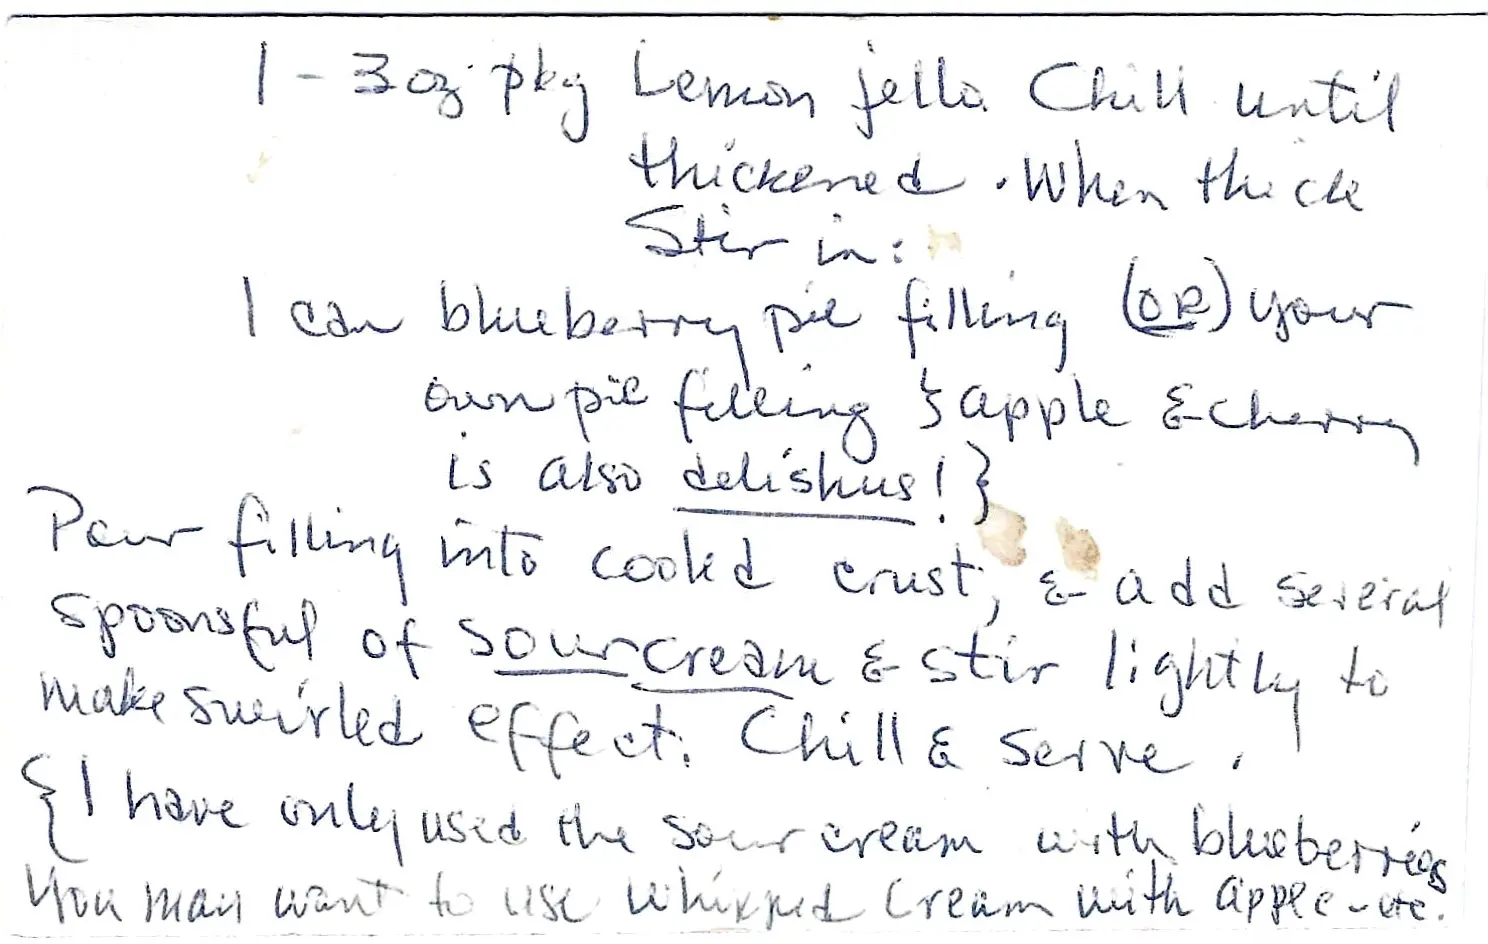 1 - 3 oz. pkg Lemon jello. Chill until
thickened. When thick
Stir in:
1 can blueberry pie filling (OR) your
own pie filling {apple & cherry
is also delishus!}
Pour filling into cooked crust, & add several
spoonsful of sour cream & stir lightly to
make swirled effect. Chill & Serve.
{I have only used the sour cream with blueberries
You may want to use whipped cream with apple - etc.